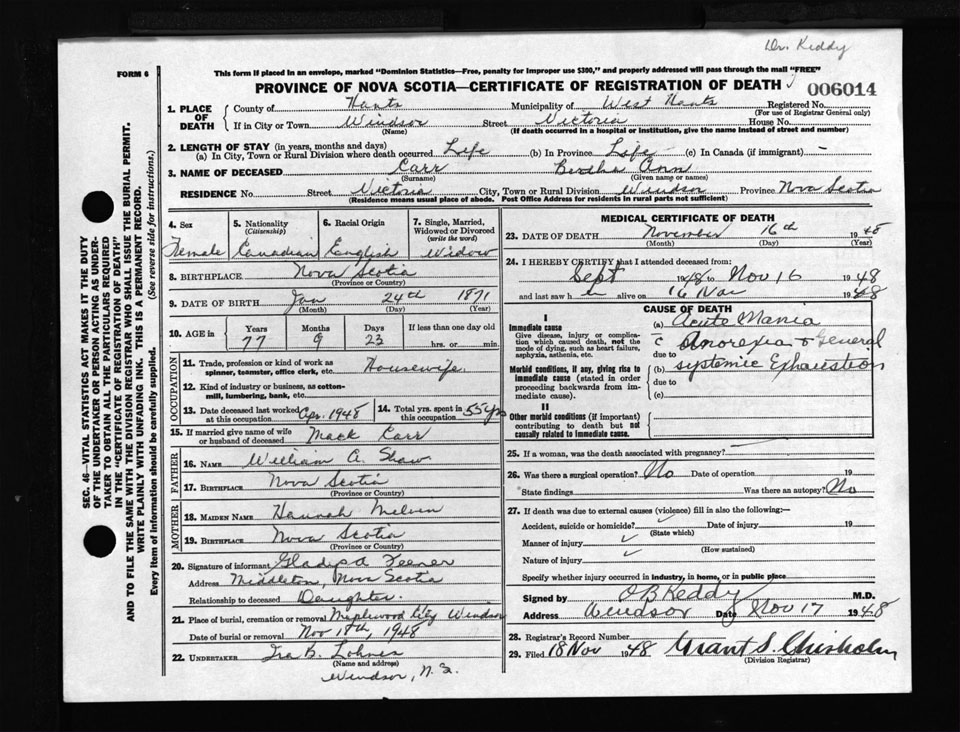 Dr. Keddy
FORM 6
This form if placed in an envelope, marked "Dominion Statistics—Free, penalty for improper use $300," and properly addressed will pass through the mail "FREE"
PROVINCE OF NOVA SCOTIA—CERTIFICATE OF REGISTRATION OF DEATH
006014
1. PLACE OF DEATH
County of Hants Municipality of West Hants Registered No.
(For use of Registrar General only)
If in City or Town Windsor Street Victoria House No.
(Name) (If death occurred in a hospital or institution, give the name instead of street and number)
2. LENGTH OF STAY (in years, months and days)
(a) In City, Town or Rural Division where death occurred Life (b) In Province Life (c) In Canada (if immigrant) —
3. NAME OF DECEASED Carr Bertha Ann
(Surname) (Given name or names)
RESIDENCE No. Street Victoria City, Town or Rural Division Windsor Province Nova Scotia
(Residence means usual place of abode. Post Office Address for residents in rural parts not sufficient)
SEC. 46—VITAL STATISTICS ACT MAKES IT THE DUTY
OF THE UNDERTAKER OR PERSON ACTING AS UNDER-
TAKER TO OBTAIN ALL THE PARTICULARS REQUIRED
IN THE "CERTIFICATE OF REGISTRATION OF DEATH"
AND TO FILE THE SAME WITH THE DIVISION REGISTRAR WHO SHALL ISSUE THE BURIAL PERMIT.
WRITE PLAINLY WITH UNFADING INK. THIS IS A PERMANENT RECORD.
Every item of information should be carefully supplied. (See reverse side for instructions.)
4. Sex
Female
5. Nationality
(Citizenship)
Canadian
6. Racial Origin
English
7. Single, Married,
Widowed or Divorced
(write the word)
Widow
8. BIRTHPLACE Nova Scotia
(Province or Country)
9. DATE OF BIRTH Jan 24th 1871
(Month) (Day) (Year)
10. AGE in
Years Months Days If less than one day old
77 9 23 hrs. or min.
OCCUPATION
11. Trade, profession or kind of work as
spinner, teamster, office clerk, etc. Housewife
12. Kind of industry or business, as cotton-
mill, lumbering, bank, etc.
13. Date deceased last worked
at this occupation Apr. 1948
14. Total yrs. spent in
this occupation 55 yrs
15. If married give name of wife
or husband of deceased Mack Carr
FATHER
16. NAME William A. Shaw
17. BIRTHPLACE Nova Scotia
(Province or Country)
MOTHER
18. MAIDEN NAME Hannah Melvin
19. BIRTHPLACE Nova Scotia
(Province or Country)
20. Signature of informant Gladys A Feener
Address Middleton, Nova Scotia
Relationship to deceased Daughter
21. Place of burial, cremation or removal Maplewood Windsor
Date of burial or removal Nov 18th, 1948
22. UNDERTAKER Ira B. Lohnes
(Name and address)
Windsor, N. S.
MEDICAL CERTIFICATE OF DEATH
23. DATE OF DEATH November 16th 1948
(Month) (Day) (Year)
24. I HEREBY CERTIFY that I attended deceased from:
Sept 1948 to Nov 16 1948
and last saw h er alive on 16 Nov 1948
CAUSE OF DEATH
I
Immediate cause
Give disease, injury or complica-
tion which caused death, not the
mode of dying, such as heart failure,
asphyxia, asthenia, etc.
Morbid conditions, if any, giving rise to
immediate cause (stated in order
proceeding backwards from im-
mediate cause).
II
Other morbid conditions (if important)
contributing to death but not
causally related to immediate cause.
(a) Acute Mania
c Anorexia & General
due to
(b) systemic Exhaustion
due to
(c)
25. If a woman, was the death associated with pregnancy?
26. Was there a surgical operation? No Date of operation 19
State findings Was there an autopsy? No
27. If death was due to external causes (violence) fill in also the following:—
Accident, suicide or homicide? Date of injury 19
(State which)
Manner of injury
(How sustained)
Nature of injury
Specify whether injury occurred in industry, in home, or in public place
Signed by O B Keddy M.D.
Address Windsor Date Nov 17 1948
28. Registrar's Record Number
29. Filed 18 Nov 1948 Grant S. Chisholm
(Division Registrar)